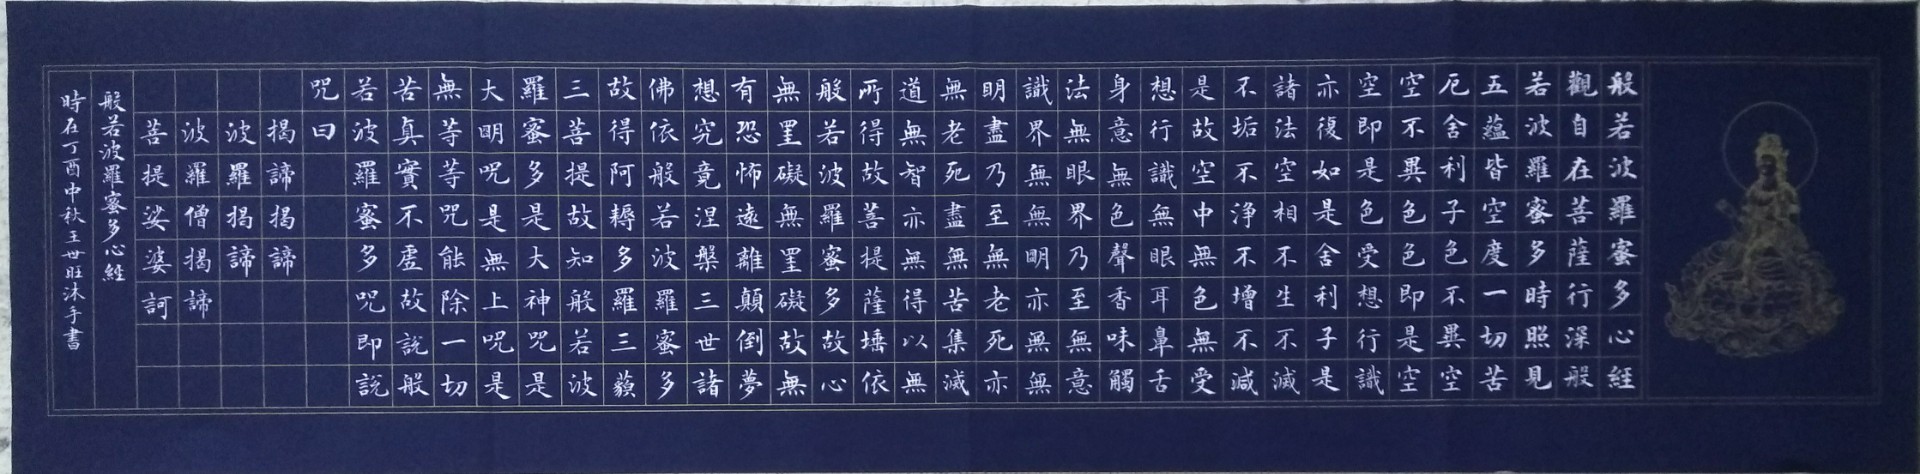 般若波羅蜜多心經
觀自在菩薩行深般
若波羅蜜多時照見
五蘊皆空度一切苦
厄舍利子色不異空
空不異色色即是空
空即是色受想行識
亦復如是舍利子是
諸法空相不生不滅
不垢不淨不增不減
是故空中無色無受
想行識無眼耳鼻舌
身意無色聲香味觸
法無眼界乃至無意
識界無無明亦無無
明盡乃至無老死亦
無老死盡無苦集滅
道無智亦無得以無
所得故菩提薩埵依
般若波羅蜜多故心
無罣礙無罣礙故無
有恐怖遠離顛倒夢
想究竟涅槃三世諸
佛依般若波羅蜜多
故得阿耨多羅三藐
三菩提故知般若波
羅蜜多是大神咒是
大明咒是無上咒是
無等等咒能除一切
苦真實不虛故說般
若波羅蜜多咒即說
咒曰
揭諦揭諦
波羅揭諦
波羅僧揭諦
菩提娑婆訶
般若波羅蜜多心經
時在丁酉中秋王世旺沐手書